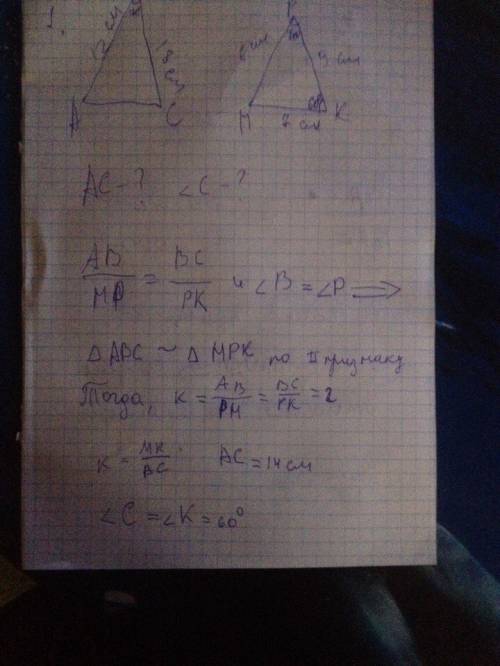 1.
12 см
18 см
A
C
P
6 см
9 см
60°
M
K
7 см
AC - ? ∠C - ?
AB/MP = BC/PK и ∠B = ∠P ⟹
△ABC ~ △MPK по II признаку
Тогда, K = AB/PM = BC/PK = 2
K = MK/BC. AC = 14 см
∠C = ∠K = 60°